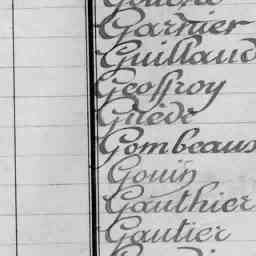 Garnier
Guillaud
Geoffroy
Guède
Gombeaus
Gouin
Gauthier
Gautier